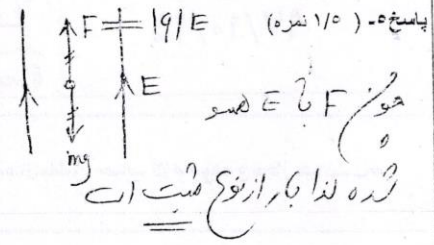 پاسخ ۵- (۱/۵ نمره)
F = |q| E
E
mg
چون F با E همسو
شده لذا بار از نوع مثبت است